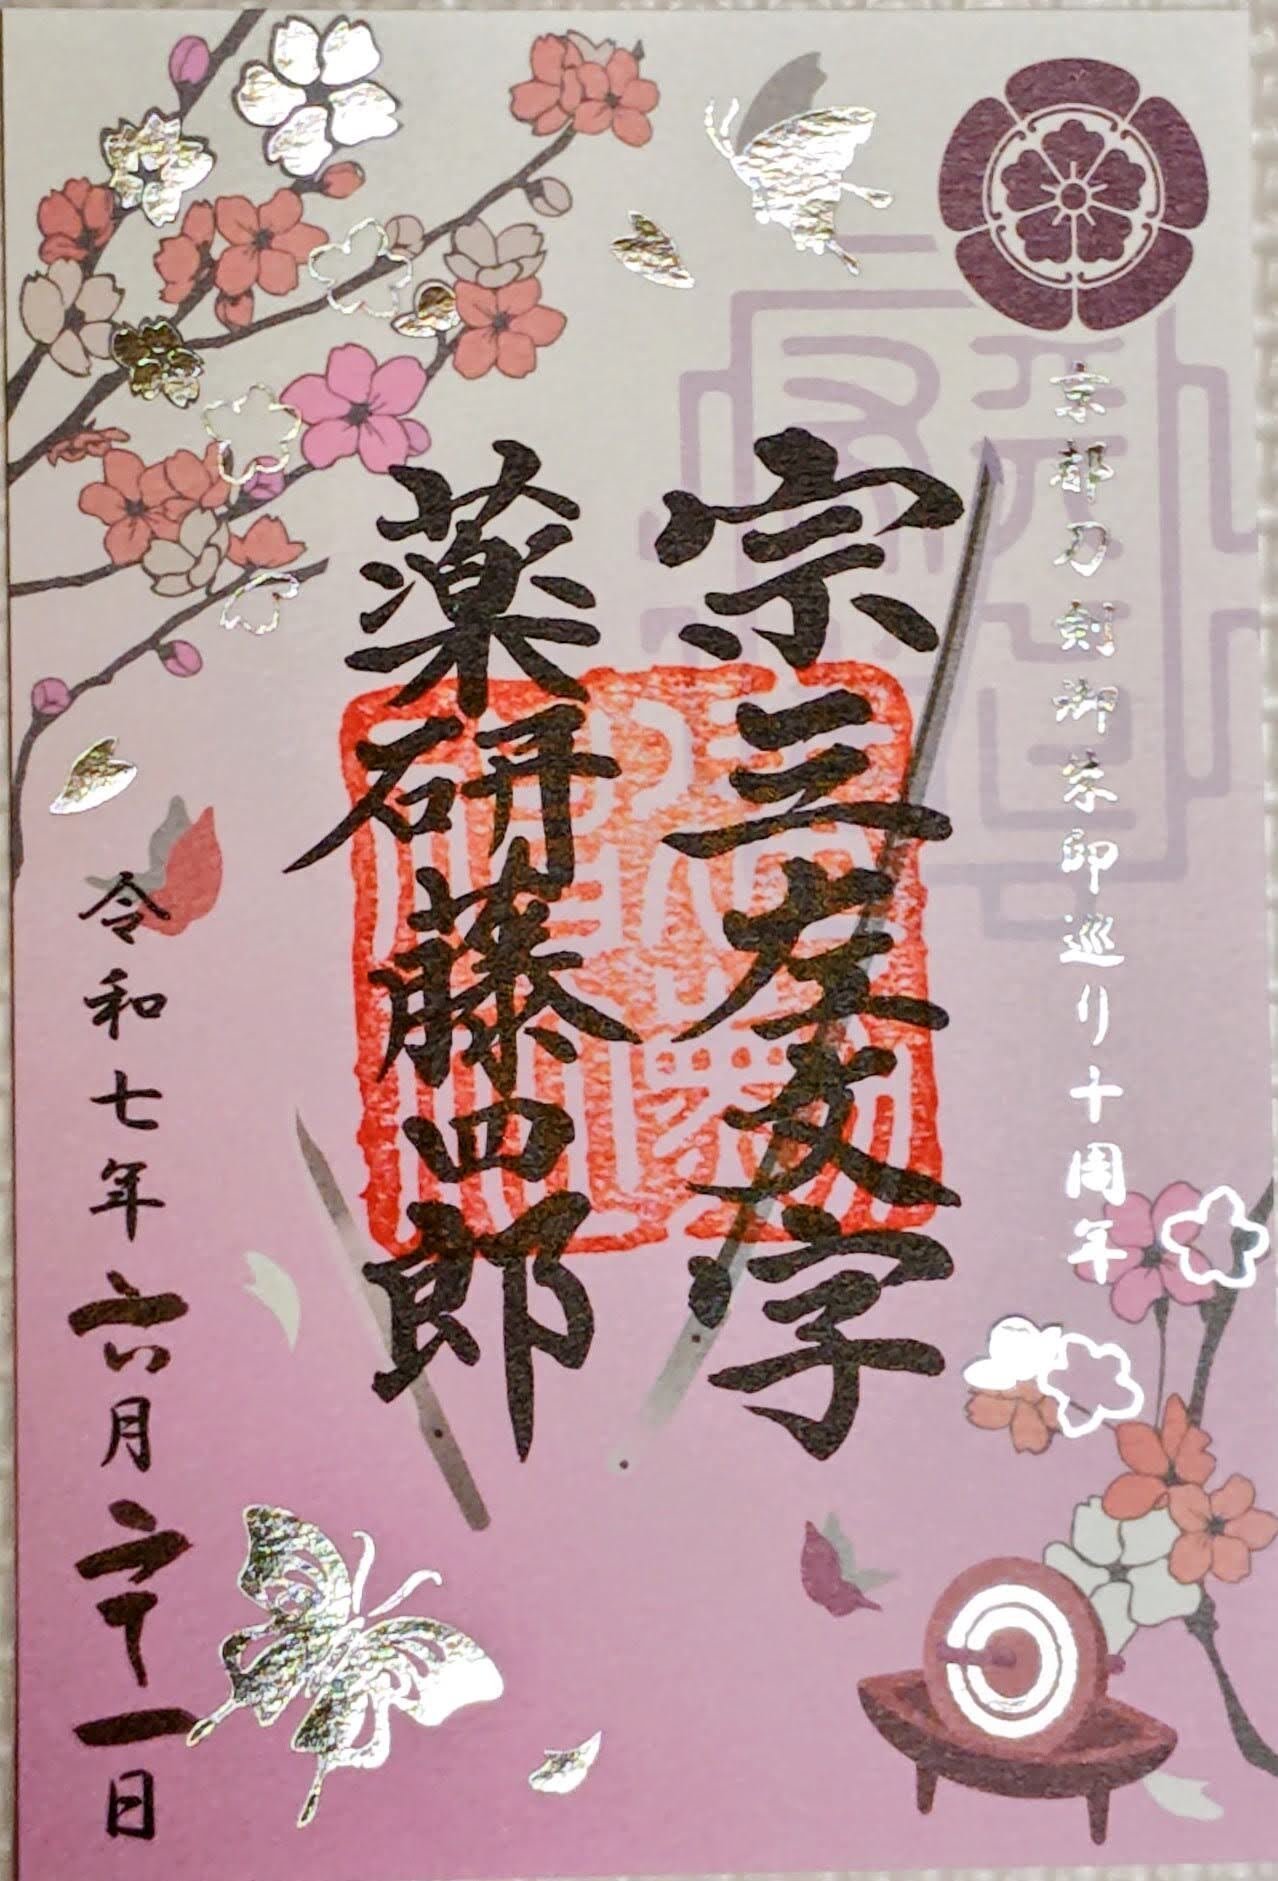 京都刀剣御朱印巡り十周年
宗三左文字
薬研藤四郎
令和七年六月二十一日